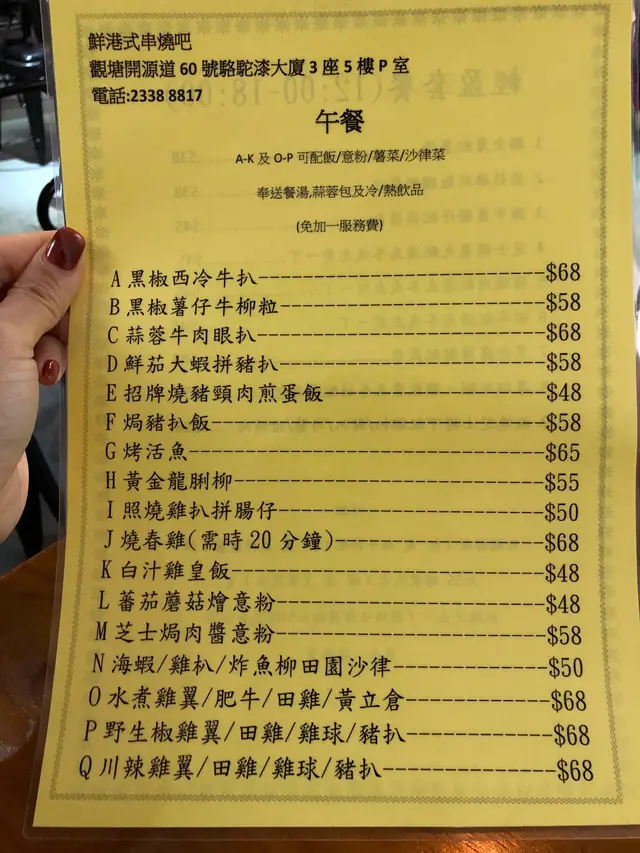 鮮港式串燒吧
觀塘開源道 60 號駱駝漆大廈 3 座 5 樓 P 室
電話:2338 8817
午餐
A-K 及 O-P 可配飯/意粉/薯菜/沙律菜
奉送餐湯,蒜蓉包及冷/熱飲品
(免加一服務費)
A 黑椒西冷牛扒---------------------------$68
B 黑椒薯仔牛柳粒-------------------------$58
C 蒜蓉牛肉眼扒---------------------------$68
D 鮮茄大蝦拼豬扒-------------------------$58
E 招牌燒豬頸肉煎蛋飯---------------------$48
F 焗豬扒飯-------------------------------$58
G 烤活魚---------------------------------$65
H 黃金龍脷柳-----------------------------$55
I 照燒雞扒拼腸仔-------------------------$50
J 燒春雞(需時 20 分鐘)--------------------$68
K 白汁雞皇飯-----------------------------$48
L 蕃茄蘑菇燴意粉-------------------------$48
M 芝士焗肉醬意粉-------------------------$58
N 海蝦/雞朳/炸魚柳田園沙律---------------$50
O 水煮雞翼/肥牛/田雞/黃立倉--------------$68
P 野生椒雞翼/田雞/雞球/豬扒--------------$68
Q 川辣雞翼/田雞/雞球/豬扒----------------$68